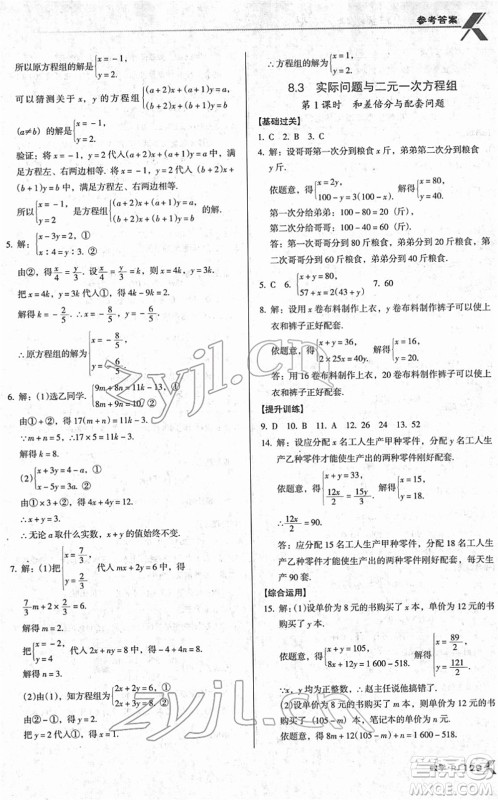 参考答案
所以原方程组的解为{x=-1, y=2.
可以猜测关于 x,y 的方程组{(a+2)x+(a+1)y=a, (b+2)x+(b+1)y=b
(a≠b) 的解为{x=-1, y=2.
验证:将 x=-1,y=2 代入(a+2)x+(a+1)y=a 中,满足方程左、右两边相等.
将 x=-1,y=2 代入(b+2)x+(b+1)y=b 中,满足方程左、右两边相等.
所以{x=-1, y=2 是方程组{(a+2)x+(a+1)y=a, (b+2)x+(b+1)y=b 的解.
5. 解:{x-3y=2,① x:4=y:3.②
由②,得 x/4=y/3. 设 x/4=y/3=k,则 x=4k,y=3k.
把 x=4k,y=3k 代入①,得 4k-9k=2.
解得 k=-2/5. ∴x=-8/5,y=-6/5.
∴原方程组的解为{x=-8/5, y=-6/5.
6. 解:(1)选乙同学.{9m+8n=11k-13,① 8m+9n=10.②
由①+②,得 17(m+n)=11k-3.
∵m+n=5,∴17×5=11k-3.
解得 k=8.
(2){x+3y=4-a,① x-5y=3a.②
由①×3+②,得 4x+4y=12.
∴x+y=3.
∴无论 a 取什么实数,x+y 的值始终不变.
7. 解:(1)把{x=7/3, y=2/3 代入 mx+2y=6,得
7/3 m+2×2/3=6.
解得 m=2.
把{x=1, y=4 代入 2x+ny=8,得 2+4n=8.
(2)由(1),知方程组为{2x+2y=6,①
∴方程组的解为{x=1, y=2.
8.3 实际问题与二元一次方程组
第1课时 和差倍分与配套问题
【基础过关】
1. C 2. B 3. C
4. 解:设哥哥第一次分到粮食 x 斤,弟弟第二次分到粮食 y 斤.
依题意,得 解得{x=80, y=40.
第一次分给弟弟:100-80=20(斤).
第二次分给哥哥:100-40=60(斤).
答:第一次哥哥分到 80 斤粮食,弟弟分到 20 斤粮食,第二次哥哥分到 60 斤粮食,弟弟分到 40 斤粮食.
5. C 6. {x+y=80, 57+x=2(43+y) 7. 60
8. 解:设用 x 卷布料制作上衣,y 卷布料制作裤子可以使上衣和裤子正好配套.
依题意,得 解得{x=16,
答:用 16 卷布料制作上衣,用 20 卷布料制作裤子可以使上衣和裤子正好配套.
【提升训练】
9. D 10. B 11. A 12. 26 13. 52
14. 解:设应分配 x 名工人生产甲种零件,y 名工人生产乙种零件才能使生产出的两种零件刚好配套.
依题意,得 解得{x=15, y=18.
答:应分配 15 名工人生产甲种零件,18 名工人生产乙种零件才能使生产出的两种零件刚好配套,每天生产 90 套.
【综合运用】
15. 解:(1)设单价为 8 元的书购买了 x 本,单价为 12 元的书购买了 y 本.
依题意,得{x+y=105, 8x+12y=1 600-518. 解得{x=89/2, y=121/2.
∵x,y 均为整数,∴赵主任说他搞错了.
(2)设单价为 8 元的书购买了 m 本,则单价为 12 元的书购买了(105-m)本.
依题意,得 8m+12(105-m)<1 600-518.
zyjl.cn
zyjl.cn